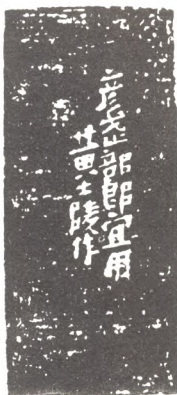 彦部郎宜用
黄士陵作